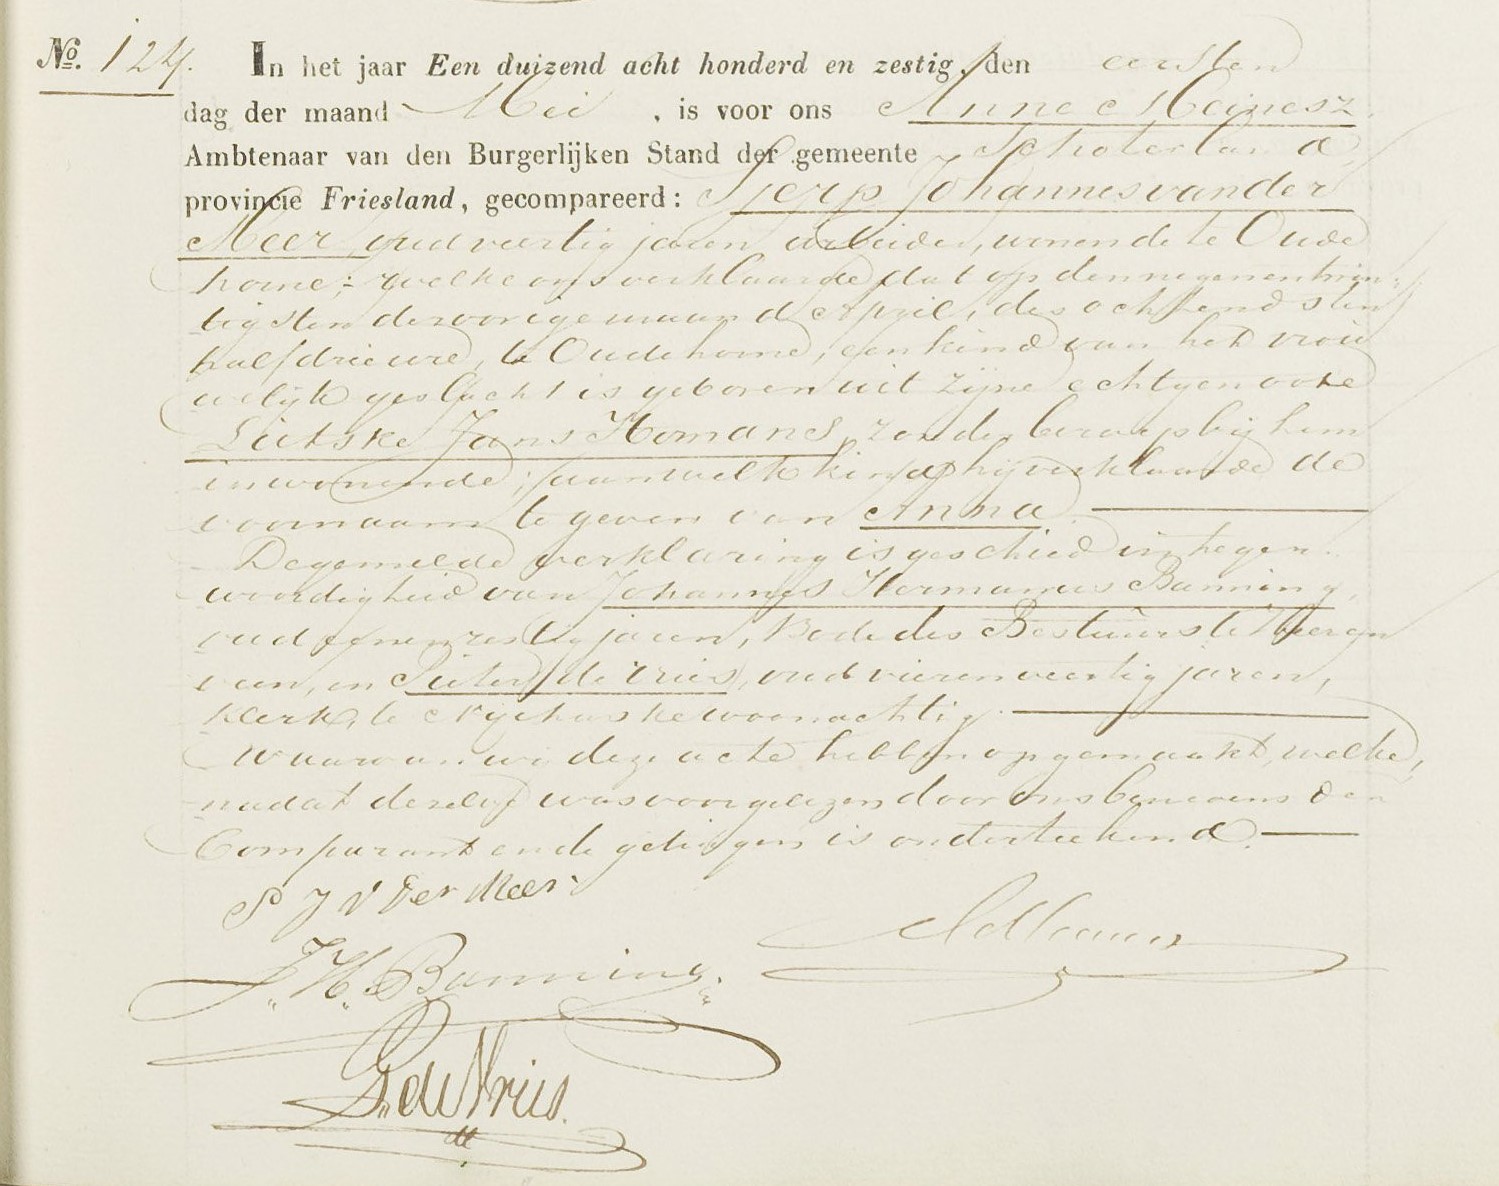 No. 124. In het jaar Een duizend acht honderd en zestig, den eersten
dag der maand Mei , is voor ons Anne Meinesz
Ambtenaar van den Burgerlijken Stand der gemeente Schoterland
provincie Friesland, gecompareerd: Sjerp Johannes van der
Meer, oud veertig jaren, arbeider, wonende te Oude
horne; welke ons verklaarde dat op den negenentwin-
tigsten der vorige maand April, des ochtends ten
half drie ure, te Oudehorne, een kind van het vrou
welijk geslacht is geboren uit zijne echtgenoote
Lutske Jans Homans, zonder beroep bij hem
inwonende; aan welk kind hij verklaarde de
voornaam te geven van Anna.
De gemelde verklaring is geschied in tegen-
woordigheid van Johannes Hermannus Banning,
oud eenenzestig jaren, Bode des Bestuurs te Heeren
veen, en Pieter de Vries, oud vierenveertig jaren,
klerk, te Nijehaske woonachtig.
Waarvan wij deze acte hebben opgemaakt, welke,
nadat dezelve was voorgelezen door ons benevens den
Comparant en de getuigen is onderteekend.
S J v der Meer.
AdMeinesz
J. H. Banning.
P. de Vries.